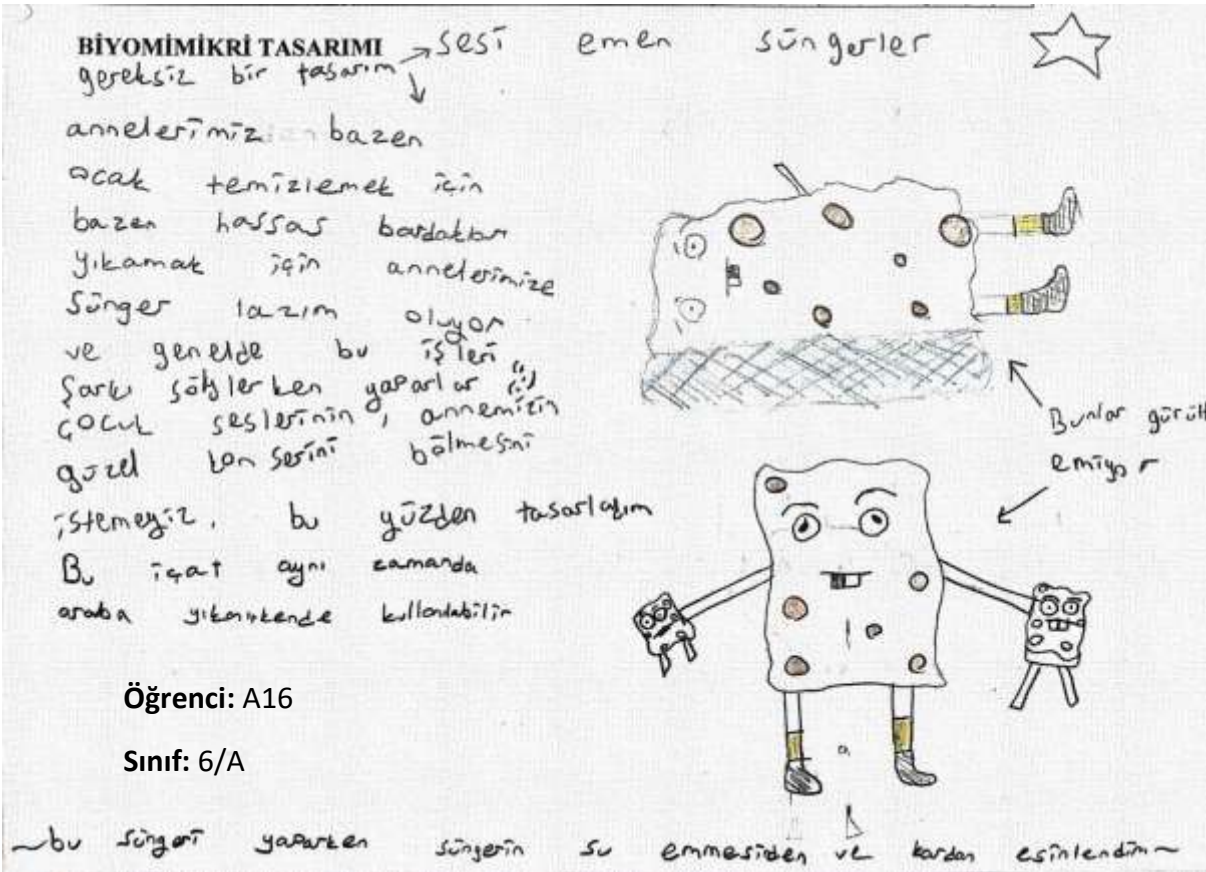 BİYOMİMİKRİ TASARIMI → sesi emen süngerler
gereksiz bir tasarım
annelerimiz bazen
ocak temizlemek için
bazen hassas bardakları
yıkamak için annelerimize
sünger lazım oluyor
ve genelde bu işleri
şarkı söylerken yaparlar
çocuk seslerinin, annemizin
güzel konserini bölmesini
istemeyiz, bu yüzden tasarladım
Bu içat aynı zamanda
araba yıkarkende kullanılabilir
Bunlar gürült
emiyor
Öğrenci: A16
Sınıf: 6/A
~bu süngeri yaparken süngerin su emmesiden ve kardan esinlendim~